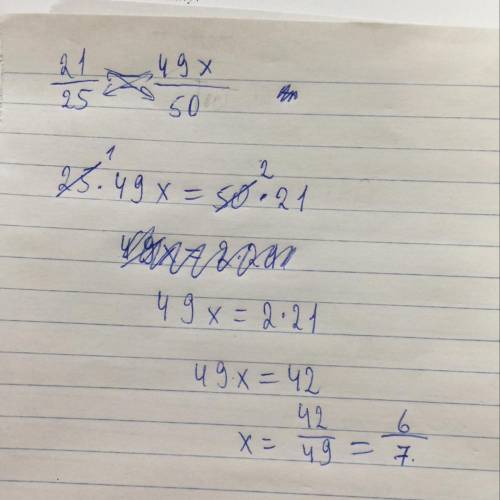 21/25 49x/50
25 · 49x = 50 · 21
1 2
49x = 2 · 21
49x = 42
x = 42/49 = 6/7